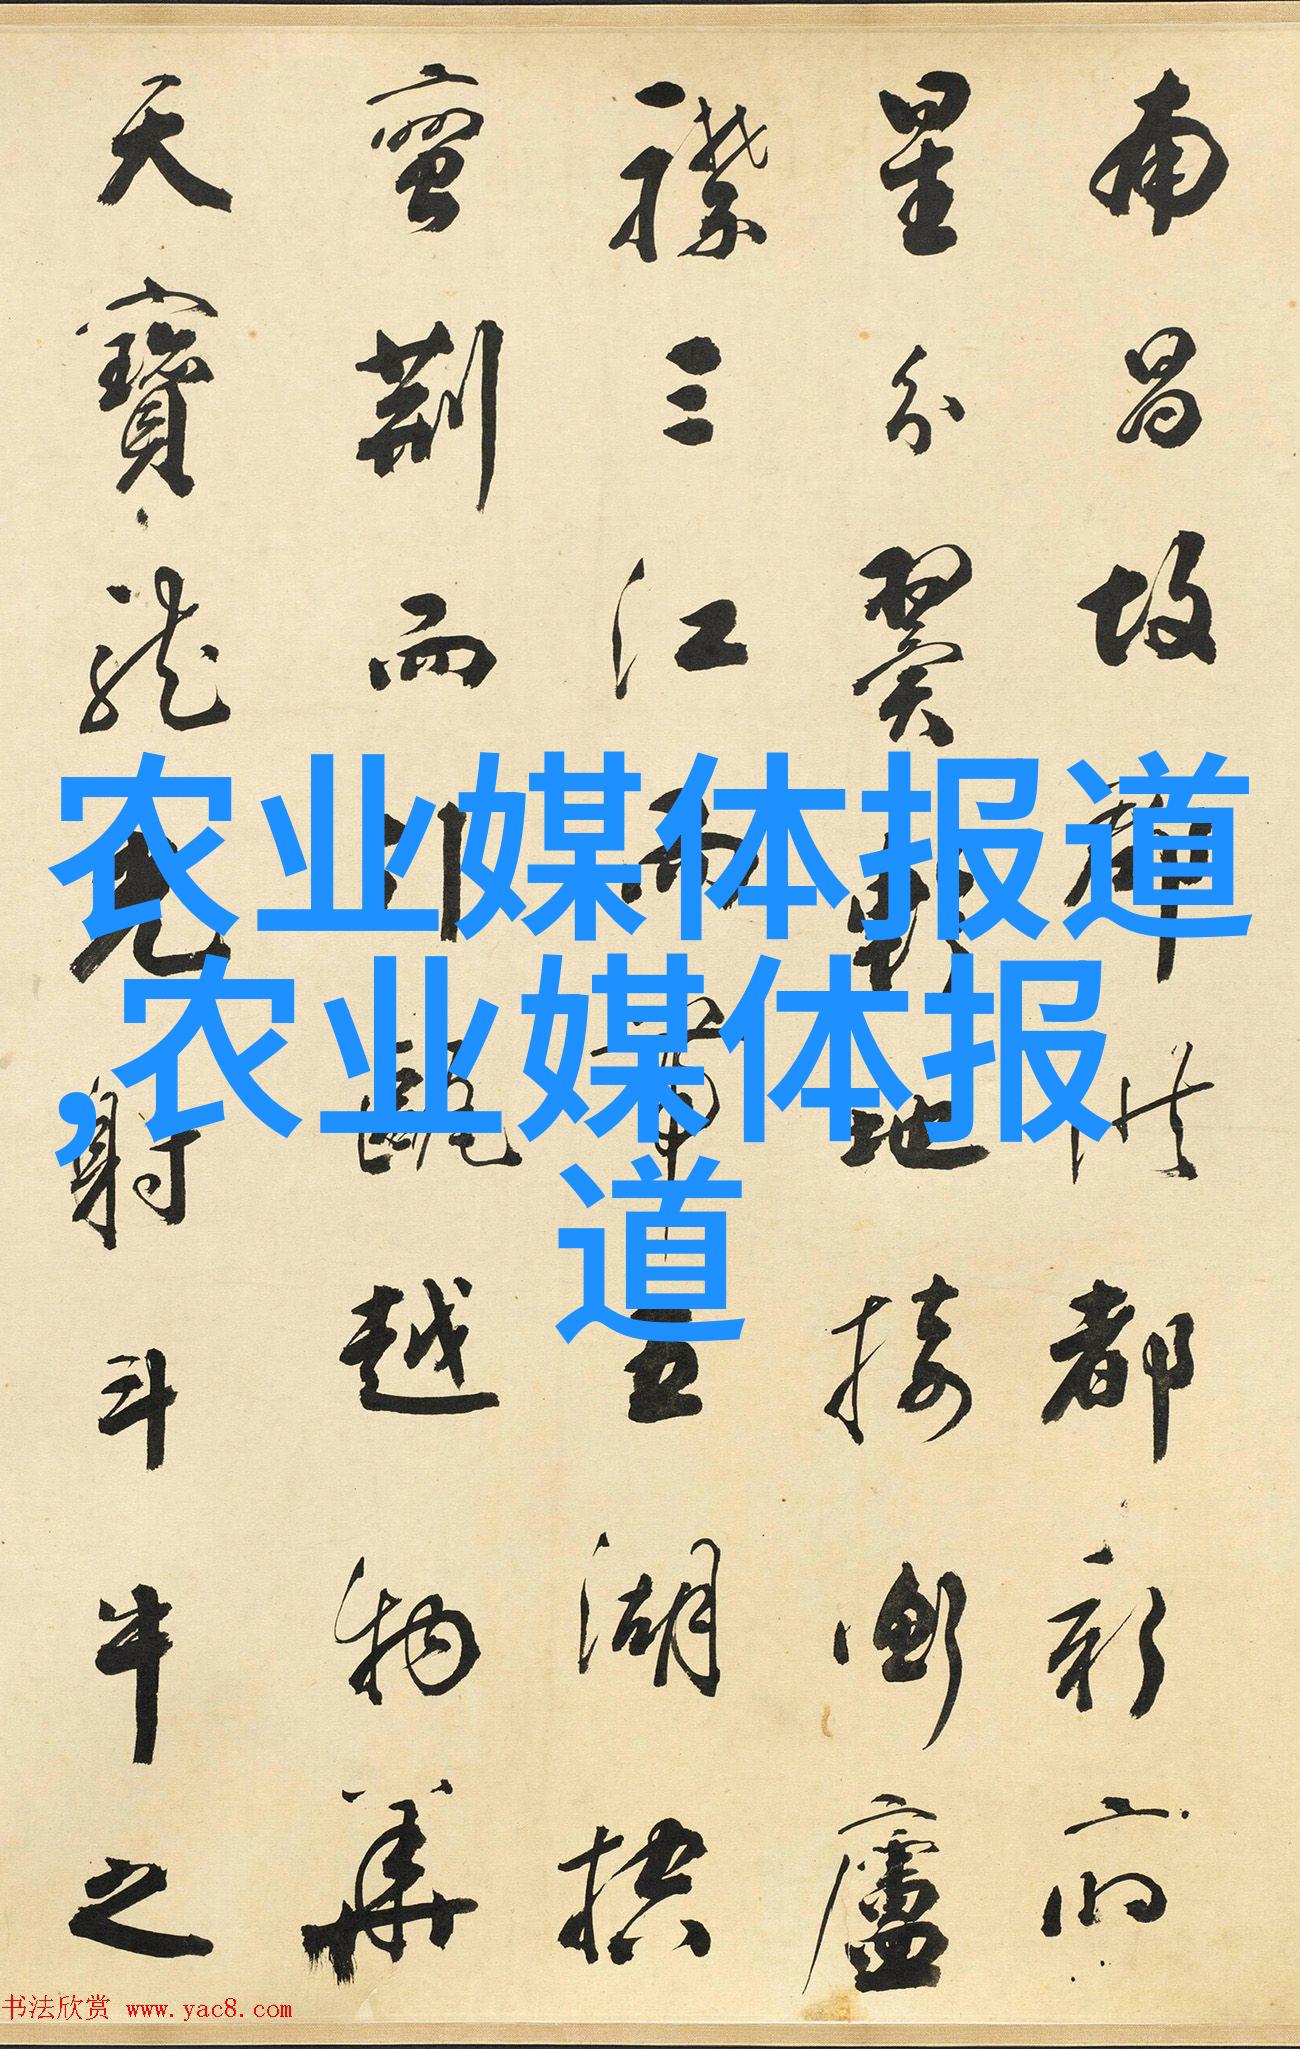 南昌故郡洪都新府
星分翼地接衡廬
襟三江而帶五湖控
蠻荊而引甌越物華
天寶龍光射斗牛之
农业媒体报道
,农业媒体报
道
书法欣赏 www.yac8.com